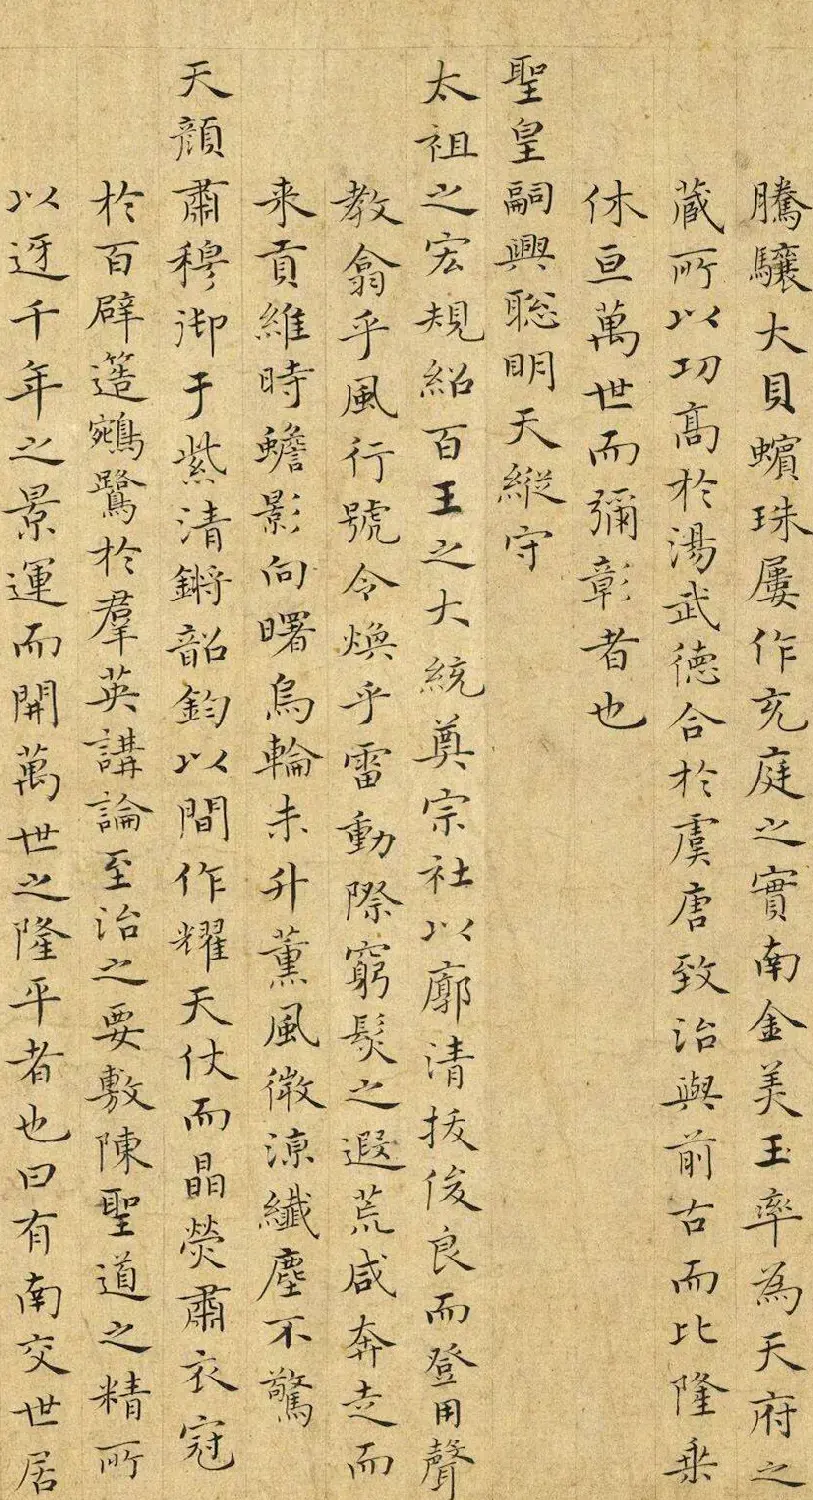 騰驤大貝蠙珠屢作充庭之實南金美玉率為天府之
藏所以功高於湯武德合於虞唐致治與前古而比隆垂
休亘萬世而彌彰者也
聖皇嗣興聰明天縱守
太祖之宏規紹百王之大統奠宗社以廓清拔俊良而登用聲
教翕乎風行號令煥乎雷動際窮髮之遐荒咸奔走而
来貢維時蟾影向曙烏輪未升薰風微涼纖塵不驚
天顏肅穆御于紫清鏘韶鈞以間作耀天仗而晶熒肅衣冠
於百辟簉鵷鷺於羣英講論至治之要敷陳聖道之精所
以迓千年之景運而開萬世之隆平者也曰有南交世居